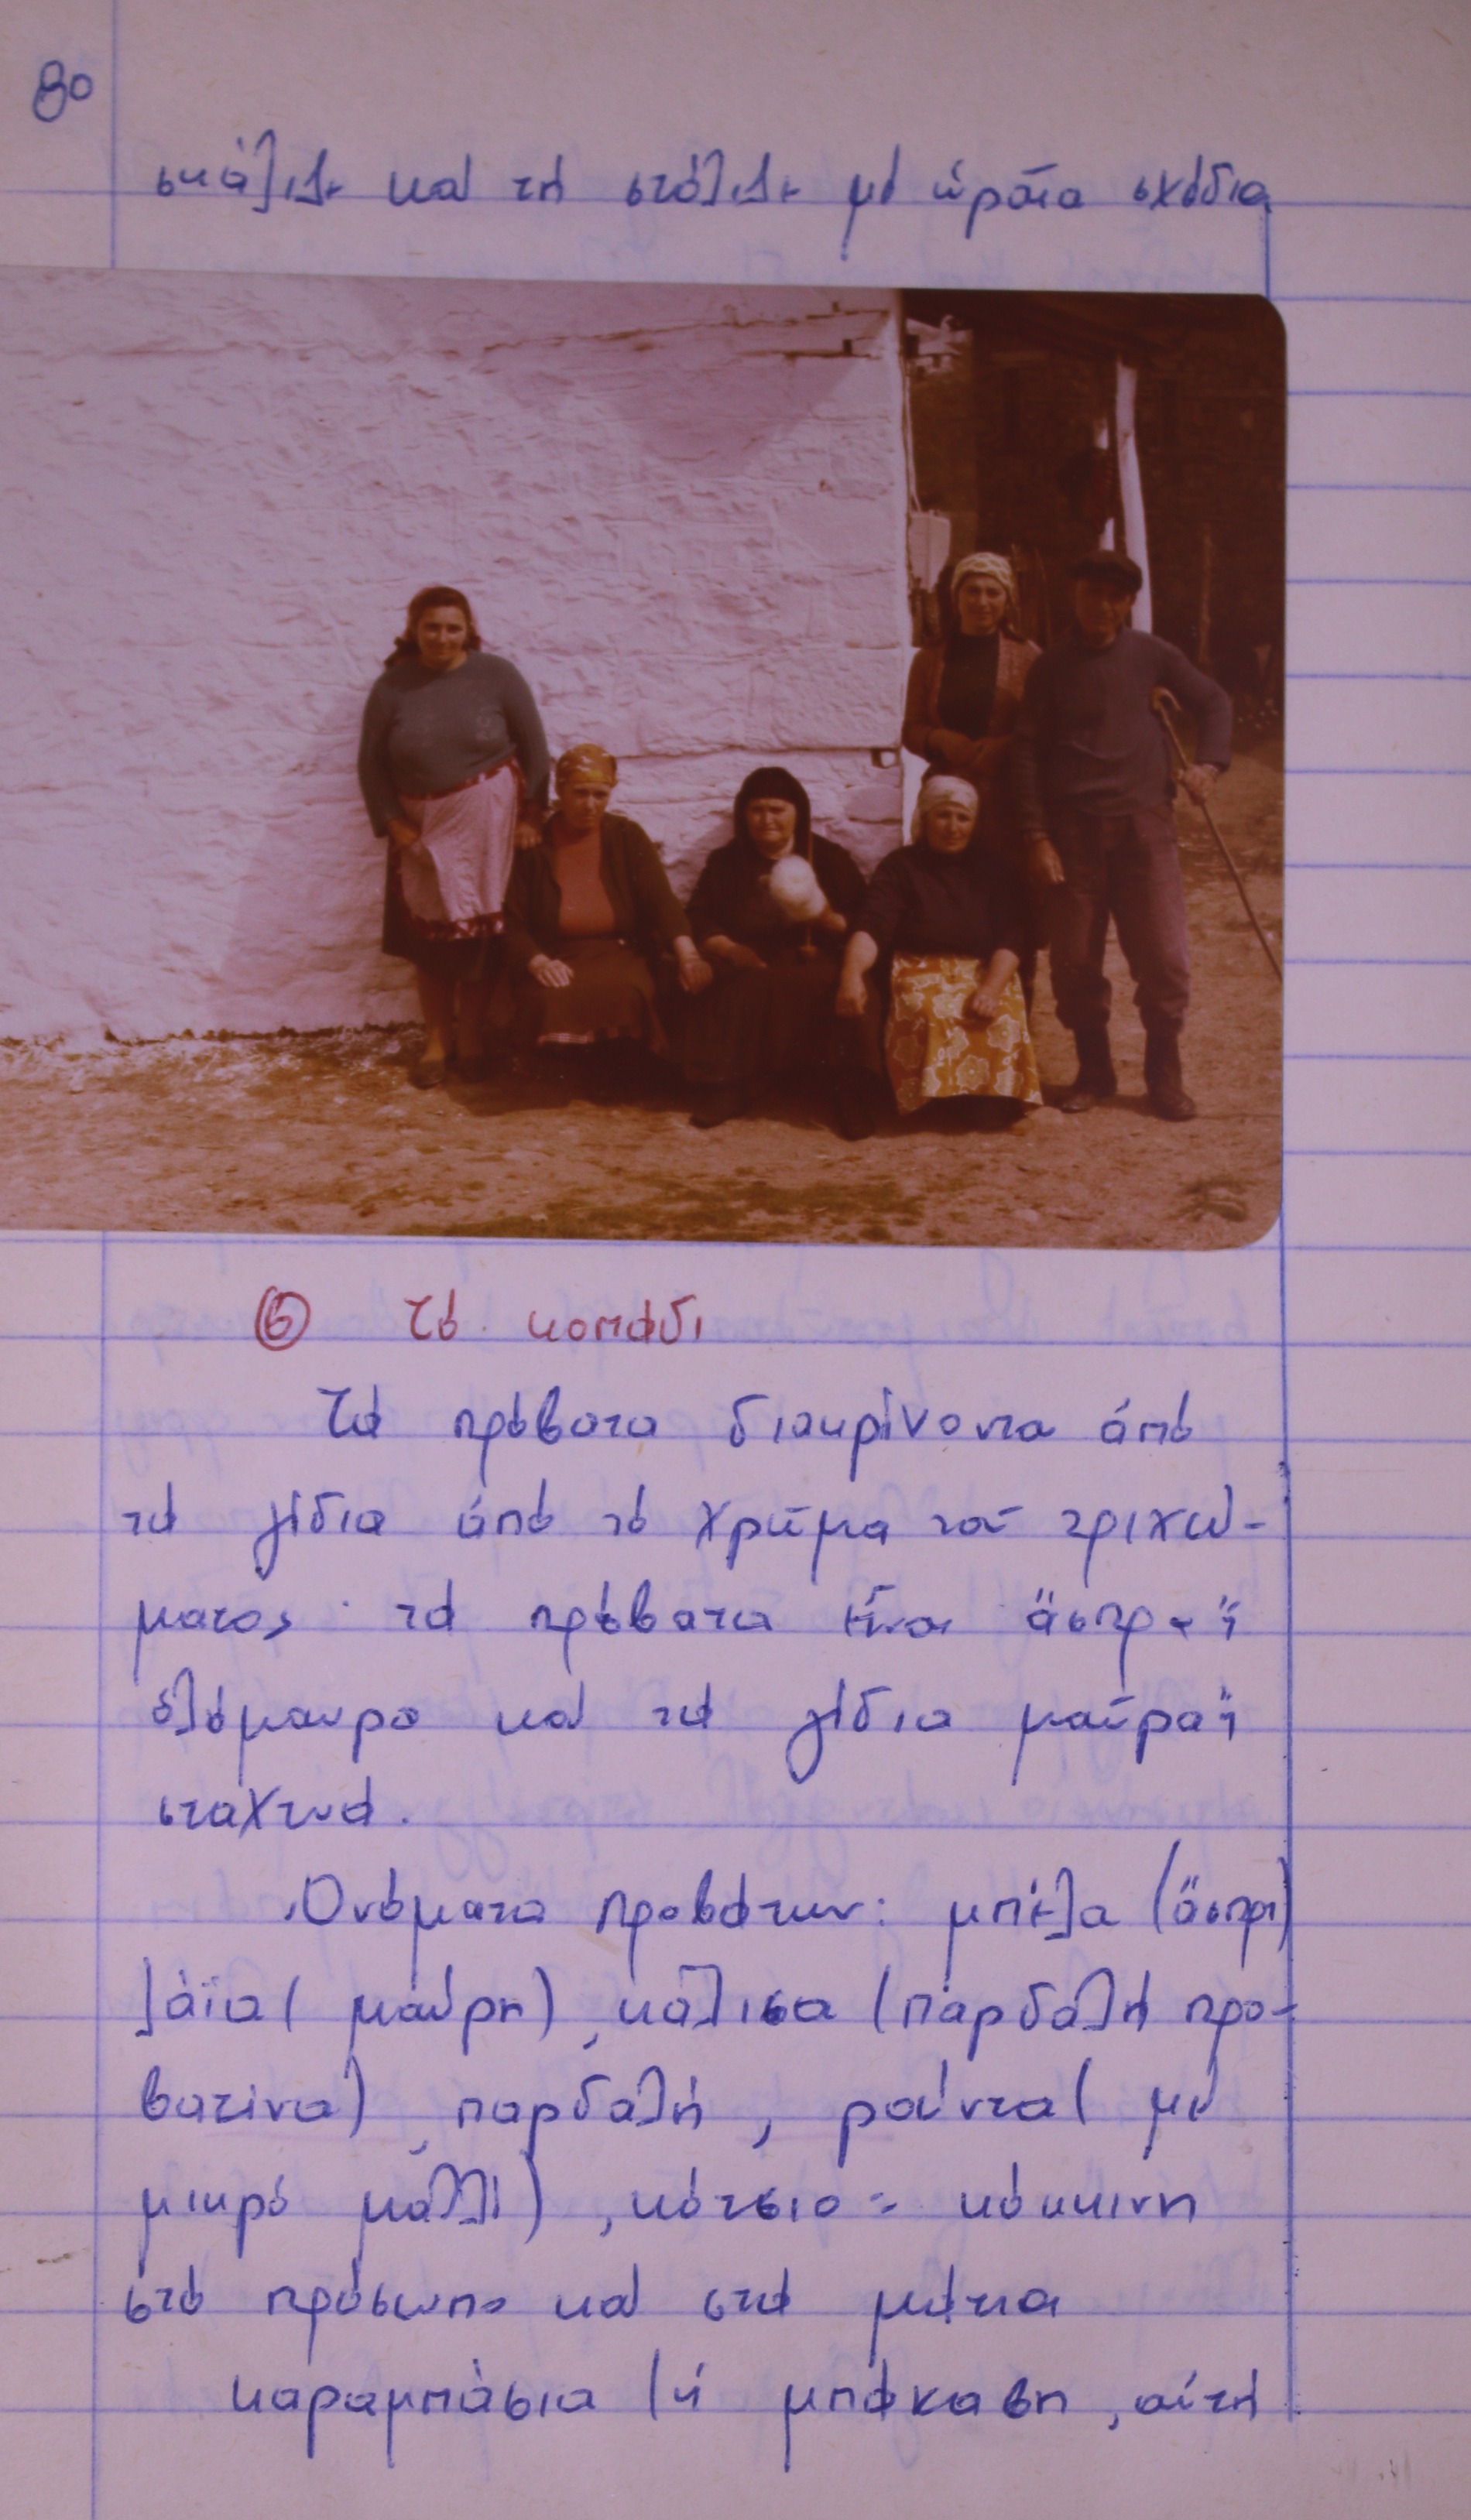 80
σκάλιζε καί τή στόλιζε μέ ὡραῖα σχέδια
⑥ Τό κοπάδι
Τά πρόβατα διακρίνονται ἀπό
τά γίδια ἀπό τό χρῶμα τοῦ τριχώ-
ματος· τά πρόβατα εἶναι ἄσπρα ἤ
ὁλόμαυρα καί τά γίδια μαῦρα ἤ
σταχτιά.
Ὀνόματα προβάτων: μπέλα (ἄσπρη)
λάϊα (μαύρη), κάλισα (παρδαλή προ-
βατίνα), παρδαλή, ρούντα (μέ
μικρό μαλλί), κότσιο = κόκκινη
στό πρόσωπο καί στά μάτια
καραμπάσια (ἤ μπάκαβη, αὐτή